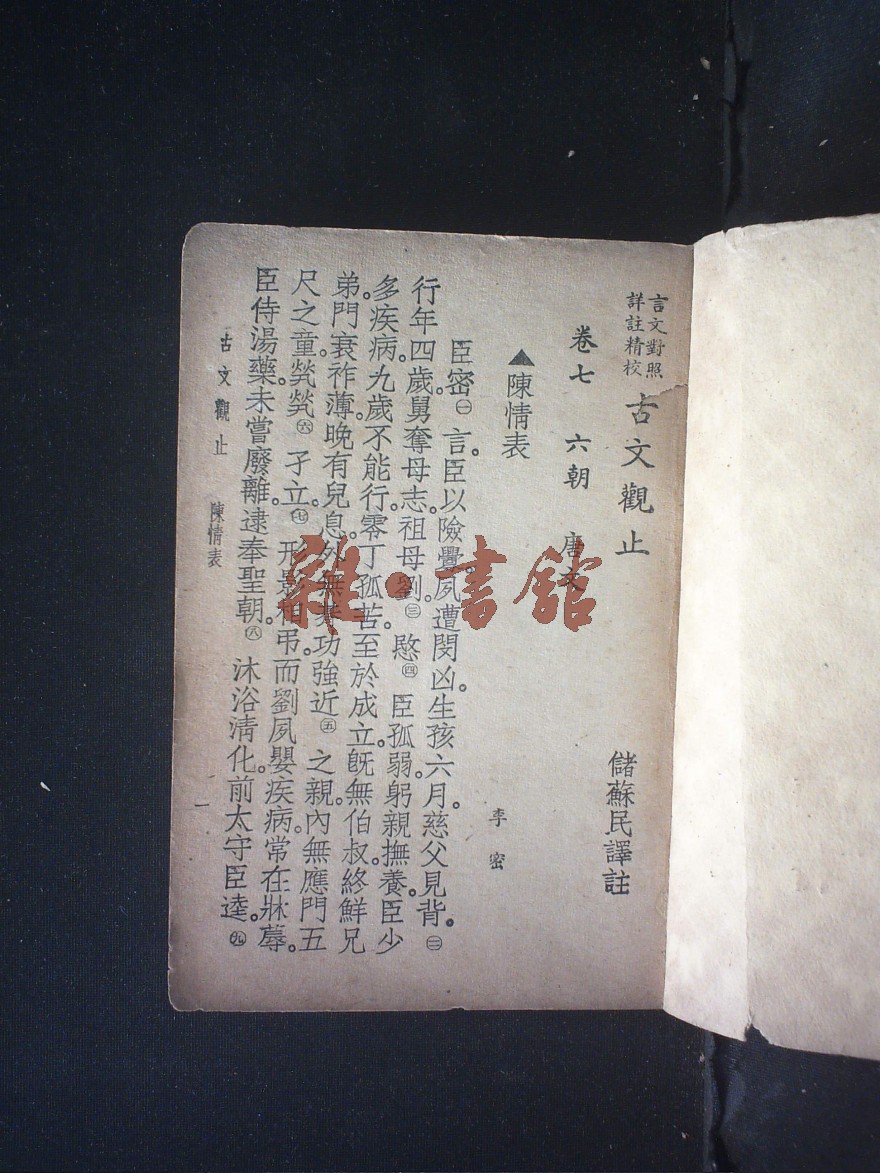 言文對照
詳註精校
古文觀止
儲蘇民譯註
卷七 六朝 唐文
▲陳情表
李密
臣密㊀言。臣以險釁。夙遭閔凶。生孩六月。慈父見背。㊁
行年四歲。舅奪母志。祖母劉㊂愍㊃臣孤弱。躬親撫養。臣少
多疾病。九歲不能行。零丁孤苦。至於成立。旣無伯叔。終鮮兄
弟。門衰祚薄。晚有兒息。外無朞功強近㊄之親。內無應門五
尺之童。煢煢㊅孑立。㊆形影相弔。而劉夙嬰疾病。常在牀蓐。
臣侍湯藥。未嘗廢離。逮奉聖朝。㊇沐浴清化。前太守臣逵。㊈
古文觀止 陳情表 一
雜·書館